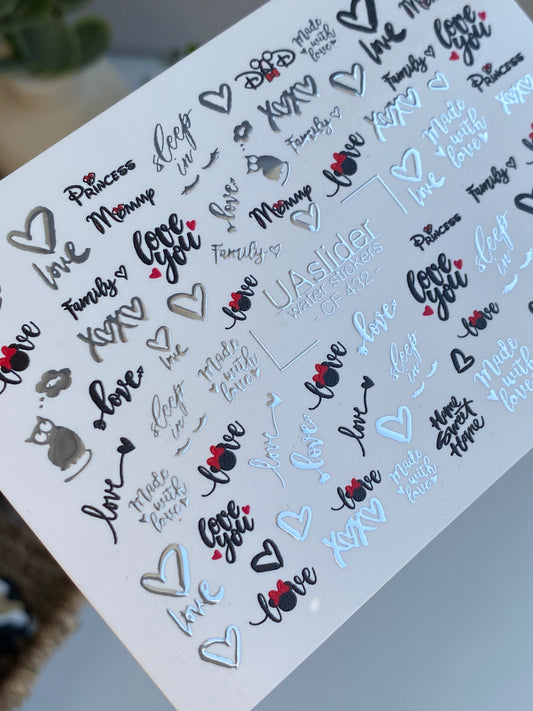 Made
with
love
love
love
you
DAD
Family
Princess
sleep
in
XOXO
XOXO
XOXO
Family
Made
with
love
love
Princess
love
Mommy
love
Family
Mommy
love
you
Family
love
UAslider
water stickers
- OF 432 -
Princess
sleep
in
Family
XOXO
love
love
love
you
love
love
love
Made
with
love
love
sleep
in
Made
with
love
love
sleep
in
love
love
love
love
Home
Sweet
Home
love
Made
with
love
love
you
love
Made
with
love
XOXO
love
love